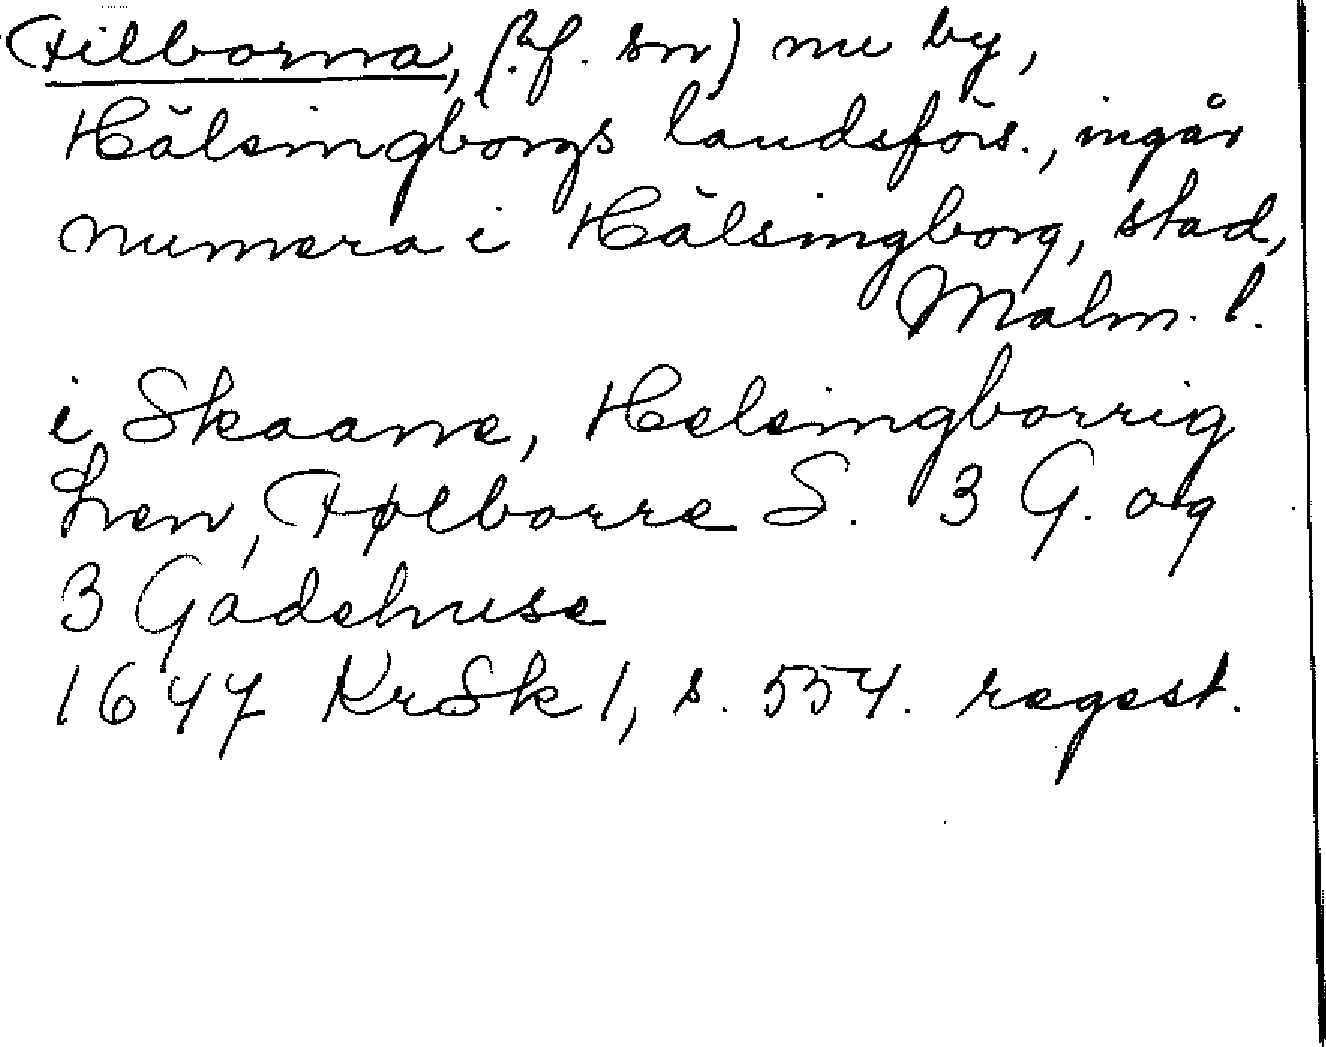 Filborna, (?f. sn) nu by,
Hälsingborgs landsförs., ingår
numera i Hälsingborg, stad,
Malm. l.
i Skaane, Helsingborrig
Len, Følborre S. 3 G. og
3 Gadehuse
1647 KrSk 1, s. 554. regest.